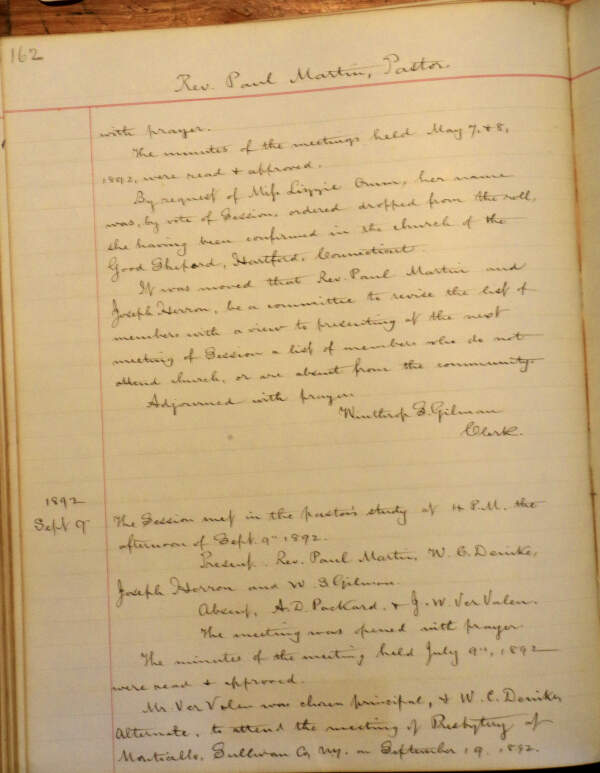 162
Rev. Paul Martin, Pastor.
with prayer.
The minutes of the meetings held May 7, & 8,
1892, were read & approved.
By request of Miss Lizzie Gunn, her name
was, by vote of Session, ordered dropped from the roll,
she having been confirmed in the church of the
Good Sheperd, Hartford, Connecticut.
It was moved that Rev. Paul Martin and
Joseph Herron, be a committee to revise the list of
members with a view to presenting at the next
meeting of Session a list of members who do not
attend church, or are absent from the community.
Adjourned with prayer.
Winthrop S. Gilman
Clerk.
1892
Sept 9" The Session met in the pastor's study at 4 P.M. the
afternoon of Sept. 9" 1892.
Present. Rev. Paul Martin, W. C. Denike,
Joseph Herron and W. S. Gilman.
Absent, A. D. Packard, & J. W. Ver Valen.
The meeting was opened with prayer
The minutes of the meeting held July 9", 1892
were read & approved.
Mr. Ver Valen was chosen principal, & W. C. Denike,
Alternate, to attend the meeting of Presbytery at
Monticello, Sullivan Co, Ny. on September 19, 1892.